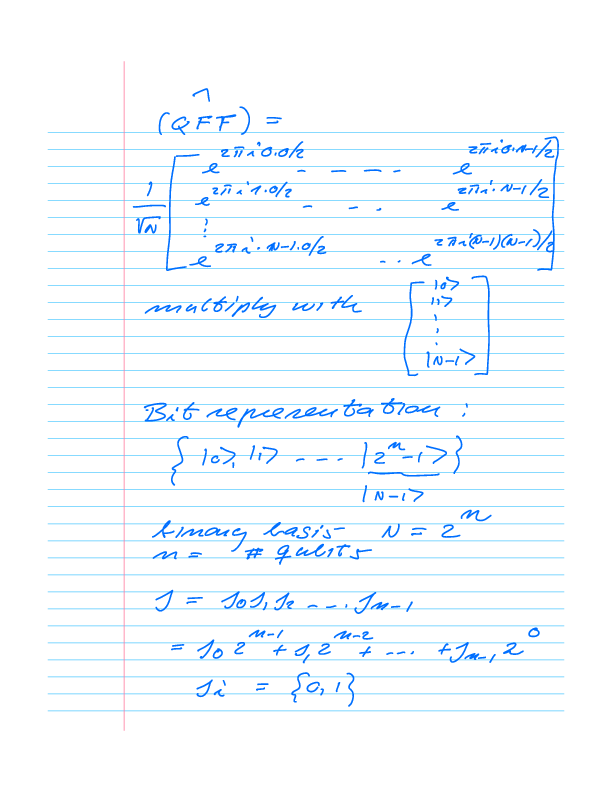 ^
(QFF) =
1/√N [ e^{2πi0.0/2} - - - - e^{2πi0.N-1/2}
e^{2πi1.0/2} - - . e^{2πi.N-1/2}
⋮
e^{2πi.N-1.0/2} - - . e^{2πi(N-1)(N-1)/2} ]
multiply with [ |0>
|1>
⋮
|N-1> ]
Bit representation :
{ |0>, |1> - - - - |2^n-1> }
|N-1>
binary basis- N = 2^n
n = # qubits
J = J0J1J2 - - - . Jn-1
= J0 2^{n-1} + J1 2^{n-2} + - - . + Jn-1 2^0
Ji = {0,1}